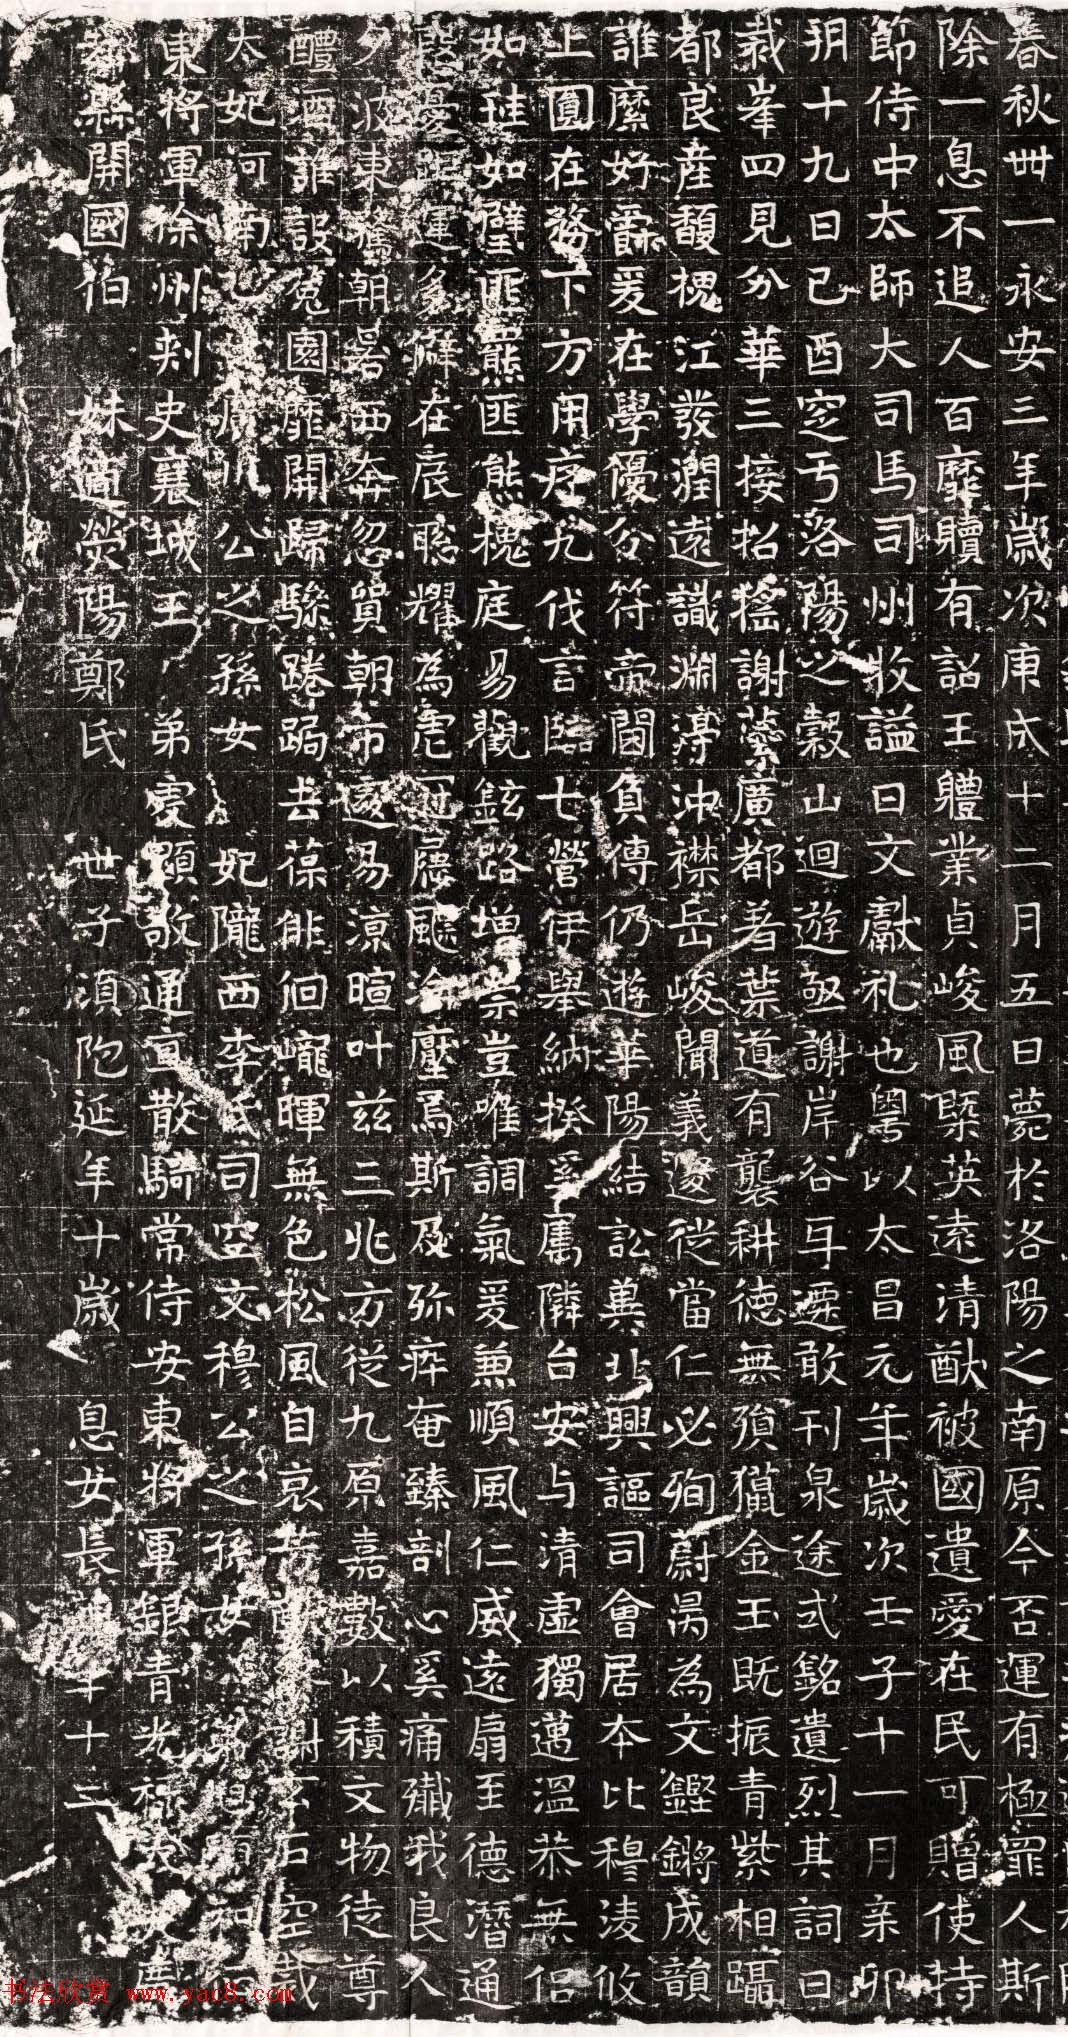 春秋卅一永安三年歲次庚戌十二月五日薨於洛陽之南原今否運有極罪人斯
除一息不追人百靡贖有詔王體業貞峻風槩英遠清猷被國遺愛在民可贈使持
節侍中太師大司馬司州牧謚曰文獻礼也粵以太昌元年歲次壬子十一月亲卯
朔十九日己酉窆于洛陽之穀山迴遊亟謝岸谷互遷敢刊泉途式銘遺烈其詞曰
裁峯四見分華三接招搖謝蘂廣都著葉道有襲耕德無殞獵金玉既振青紫相躡
都良產馥槐江發潤遠識淵渟沖襟岳峻聞義邊從當仁必殉蔚爲為文鏗鏘成韻
誰縻好爵爰在學優分符帝閫負傳仍遊華陽結訟冀北興謳司會居本比穆淩攸
上圓在務下方用� 九伐言臨七營伊舉納揆奚屬隣台安与清虛獨邁溫恭無侶
如珪如璧匪羆匪熊槐庭易觀鉉路增崇豈唯調氣爰兼順風仁威遠扇至德潛通
運多僻在辰 耀為 冠屨 淪壓焉斯及弥庢奄臻剖心奚痛殱我良人
夕波東鶩朝晷西奔忽貿朝市遽易涼暄叶兹三兆方從九原嘉數以積文物徒尊
醴酒誰設菟園靡開歸驂踡跼去葆俳佪巃暉無色松風自哀 謝玄石空裁
太妃河南 公之孫女 妃隴西李氏司空文穆公之孫女
東將軍徐州刺史襄城王 弟 顯敬通直散騎常侍安東將軍銀青光 夫
縣開國伯 妹適滎陽鄭氏 世子湏陁延年十歲 息女長 年十二
书法欣赏 www.yac8.com